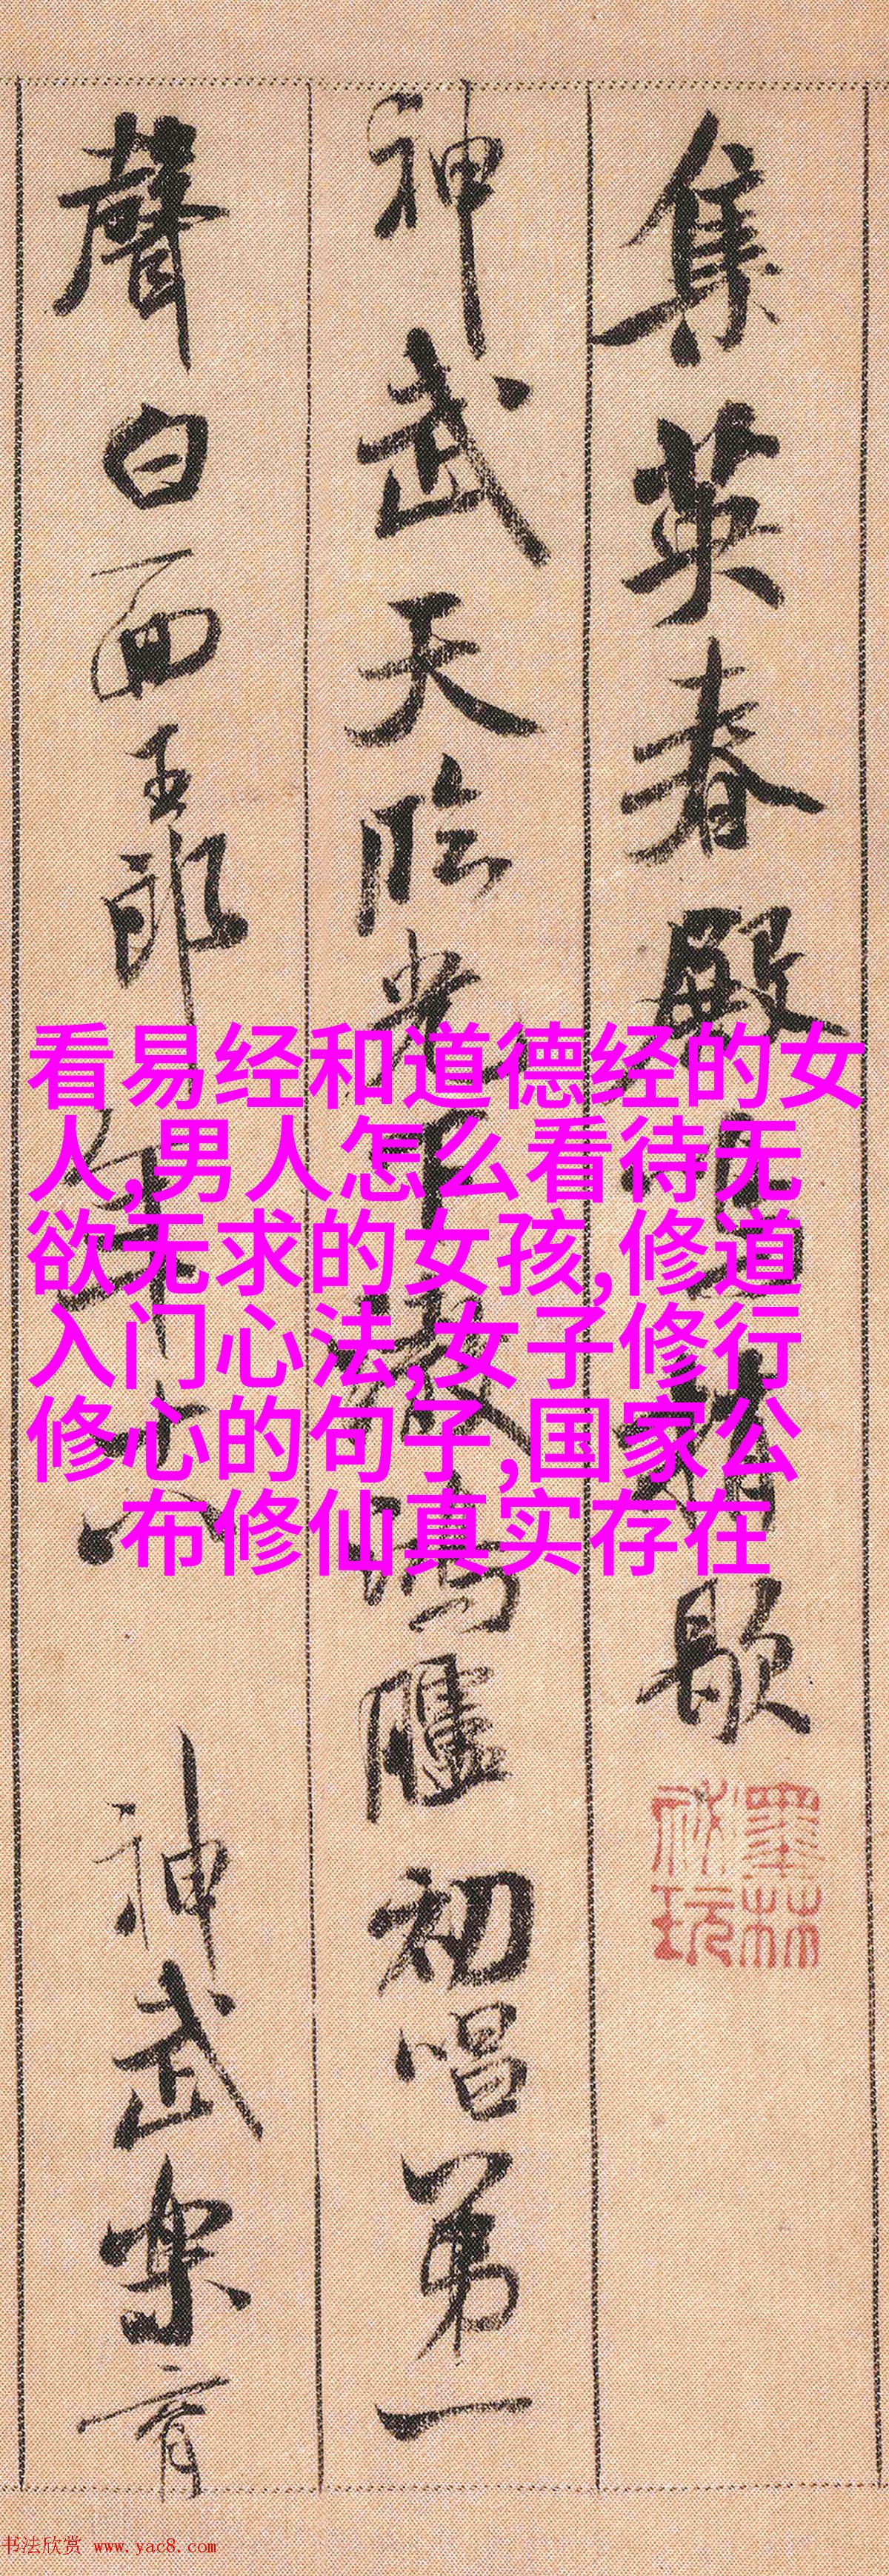 集英春殿鳴梢歇
神武天臨光下澈鴻臚初唱第一
聲白面王郎年十八
神武樂育
墨林
祕玩
看易经和道德经的女
人,男人怎么看待无
欲无求的女孩,修道
入门心法,女子修行
修心的句子,国家公
布修仙真实存在
书法欣赏 www.yac8.com